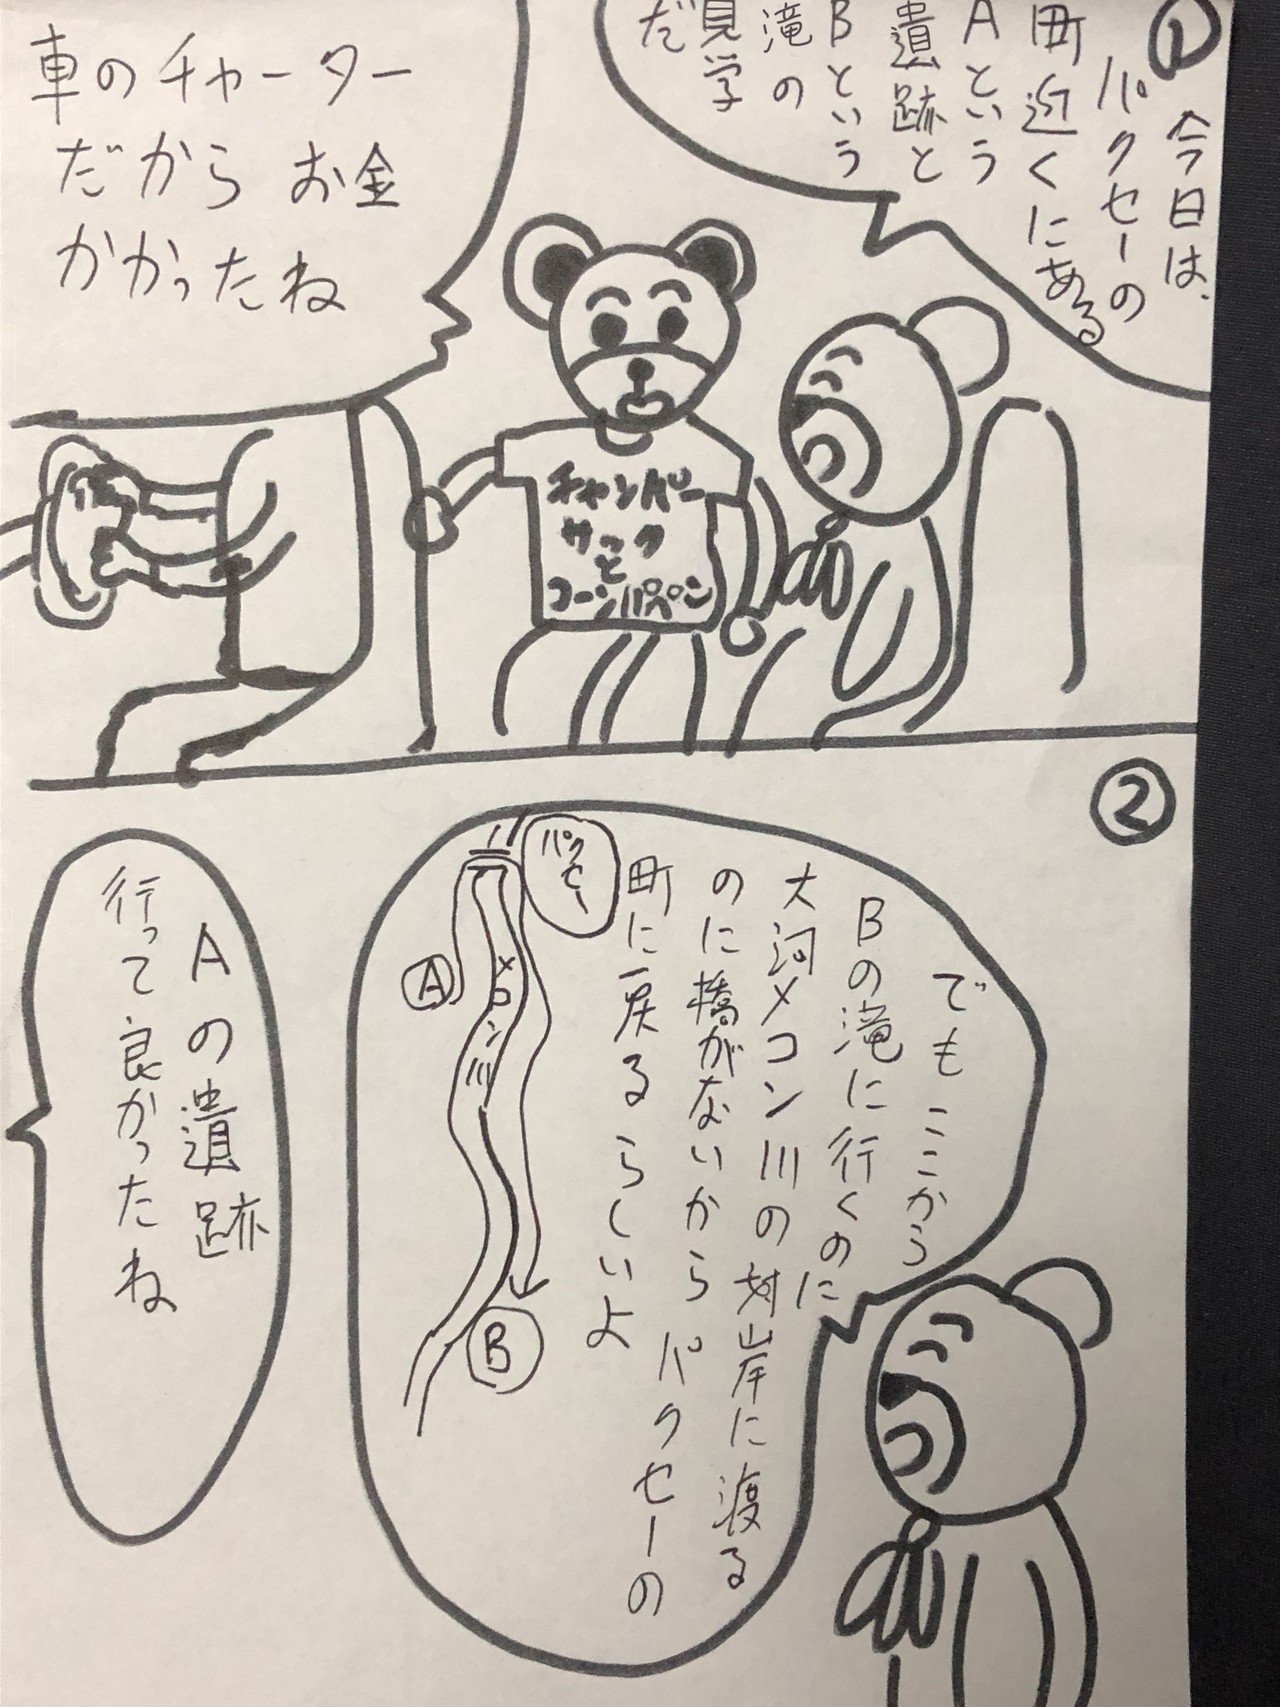 ①
今日は、
パクセーの
町近くにある
Aという
遺跡と
Bという
滝の
見学
だ
車のチャーター
だからお金
かかったね
チャンパー
サック
と
コーンパペン
②
でもここから
Bの滝に行くのに
大河メコン川の対岸に渡る
のに橋がないからパクセーの
町に戻るらしいよ
パクセー
A
メコン川
B
Aの遺跡
行って良かったね